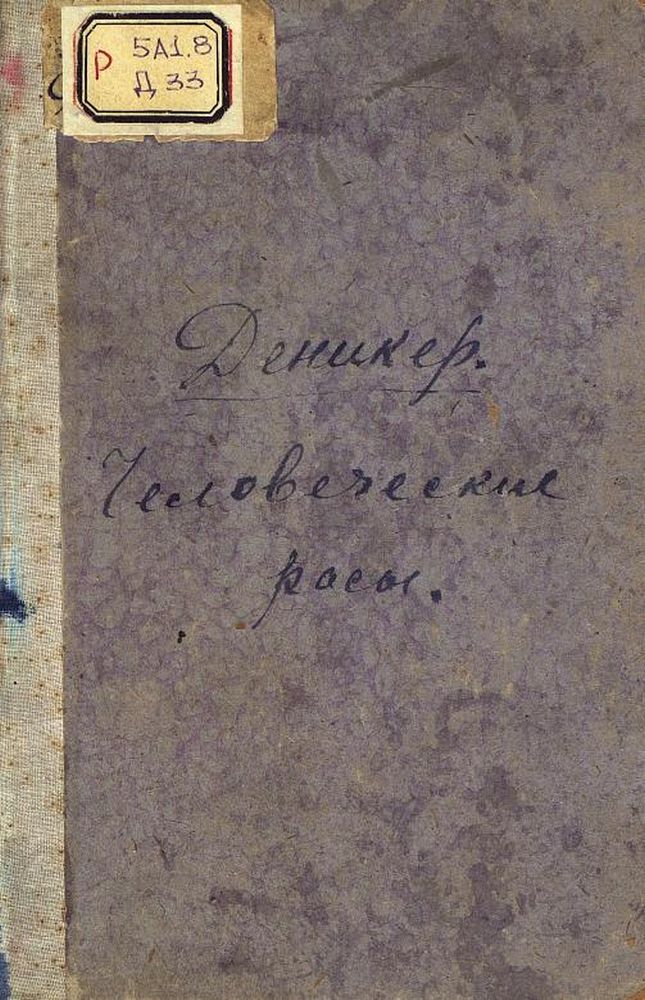 Р 5А1.8
Д 33
Деникер.
Человеческие
расы.